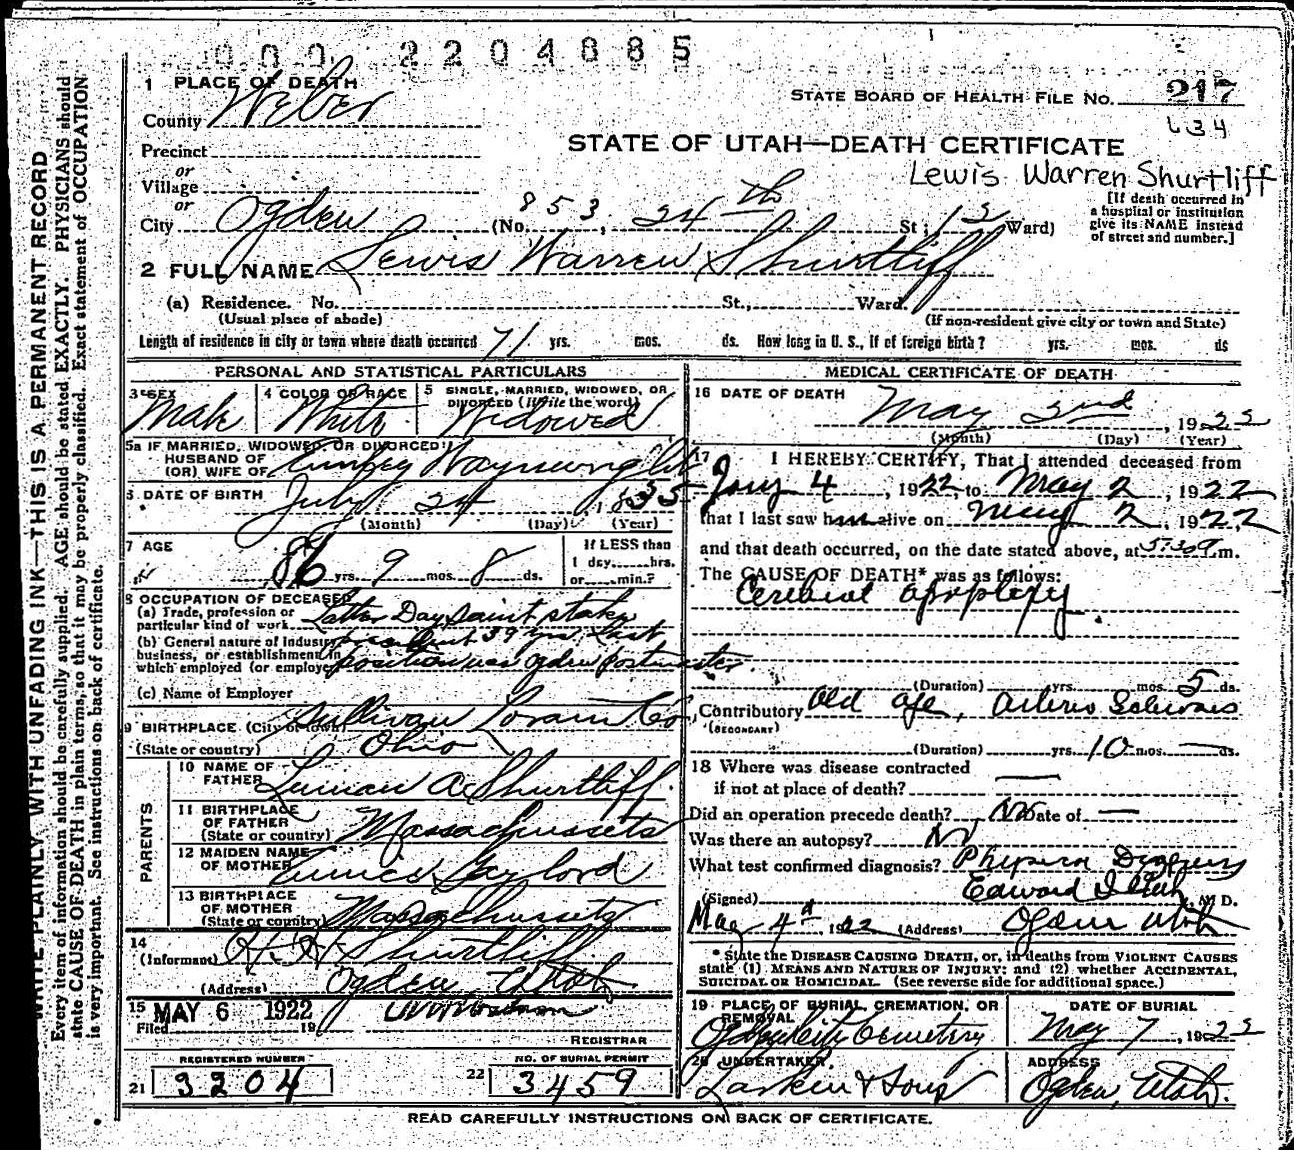 000 2204885
1 PLACE OF DEATH
County Weber
STATE BOARD OF HEALTH FILE NO. 217
634
Precinct
STATE OF UTAH—DEATH CERTIFICATE
or
Village
Lewis Warren Shurtliff
or
City Ogden (No. 853, 24th St; Ward)
[If death occurred in
a hospital or institution
give its NAME instead
of street and number.]
2 FULL NAME Lewis Warren Shurtliff
(a) Residence. No. St., Ward.
(Usual place of abode) (If non-resident give city or town and State)
Length of residence in city or town where death occurred 71 yrs. mos. ds. How long in U. S., if of foreign birth? yrs. mos. ds
PERSONAL AND STATISTICAL PARTICULARS
3 SEX Male
4 COLOR OR RACE White
5 SINGLE, MARRIED, WIDOWED, OR
DIVORCED (Write the word) Widowed
5a IF MARRIED, WIDOWED, OR DIVORCED
HUSBAND OF
(OR) WIFE OF
6 DATE OF BIRTH July 24 1835
(Month) (Day) (Year)
7 AGE 86 yrs. 9 mos. 8 ds.
If LESS than
1 day, hrs.
or min.?
8 OCCUPATION OF DECEASED
(a) Trade, profession or
particular kind of work Latter Day Saint stake
(b) General nature of Industry, president 39 yrs. Last
business, or establishment in
which employed (or employer) position was Ogden postmaster.
(c) Name of Employer
9 BIRTHPLACE (City or town) Sullivan Lorain Co,
(State or country) Ohio
PARENTS
10 NAME OF
FATHER Luman A Shurtliff
11 BIRTHPLACE
OF FATHER
(State or country) Massachussets
12 MAIDEN NAME
OF MOTHER Eunice Gaylord
13 BIRTHPLACE
OF MOTHER
(State or country) Massachussets
14
(Informant) Shurtliff
(Address) Ogden, Utah
15 MAY 6 1922
Filed 19
REGISTRAR
REGISTERED NUMBER
21 3204
NO. OF BURIAL PERMIT
22 3459
MEDICAL CERTIFICATE OF DEATH
16 DATE OF DEATH May 2nd, 1922
(Month) (Day) (Year)
17 I HEREBY CERTIFY, That I attended deceased from
Jany 4, 1922, to May 2, 1922
that I last saw him alive on May 2, 1922
and that death occurred, on the date stated above, at 5:30 P.m.
The CAUSE OF DEATH* was as follows:
Cerebral apoplexy.
(Duration) yrs. mos. 5 ds.
Contributory Old age, Arterio Sclerosis
(SECONDARY)
(Duration) yrs. 10 mos. — ds.
18 Where was disease contracted
if not at place of death? —
Did an operation precede death? No Date of —
Was there an autopsy? No
What test confirmed diagnosis? Physical
(Signed) Edward I, M D.
May 4th 1922 (Address) Ogden Utah
* State the DISEASE CAUSING DEATH, or, in deaths from VIOLENT CAUSES
state (1) MEANS AND NATURE OF INJURY; and (2) whether ACCIDENTAL,
SUICIDAL OR HOMICIDAL. (See reverse side for additional space.)
19 PLACE OF BURIAL, CREMATION, OR
REMOVAL
Ogden City Cemetery
DATE OF BURIAL
May 7, 1922
20 UNDERTAKER
Larkin & Sons
ADDRESS
Ogden, Utah.
READ CAREFULLY INSTRUCTIONS ON BACK OF CERTIFICATE.
WRITE PLAINLY, WITH UNFADING INK—THIS IS A PERMANENT RECORD
Every item of information should be carefully supplied. AGE should be stated EXACTLY. PHYSICIANS should
state CAUSE OF DEATH in plain terms, so that it may be properly classified. Exact statement of OCCUPATION
is very important. See instructions on back of certificate.